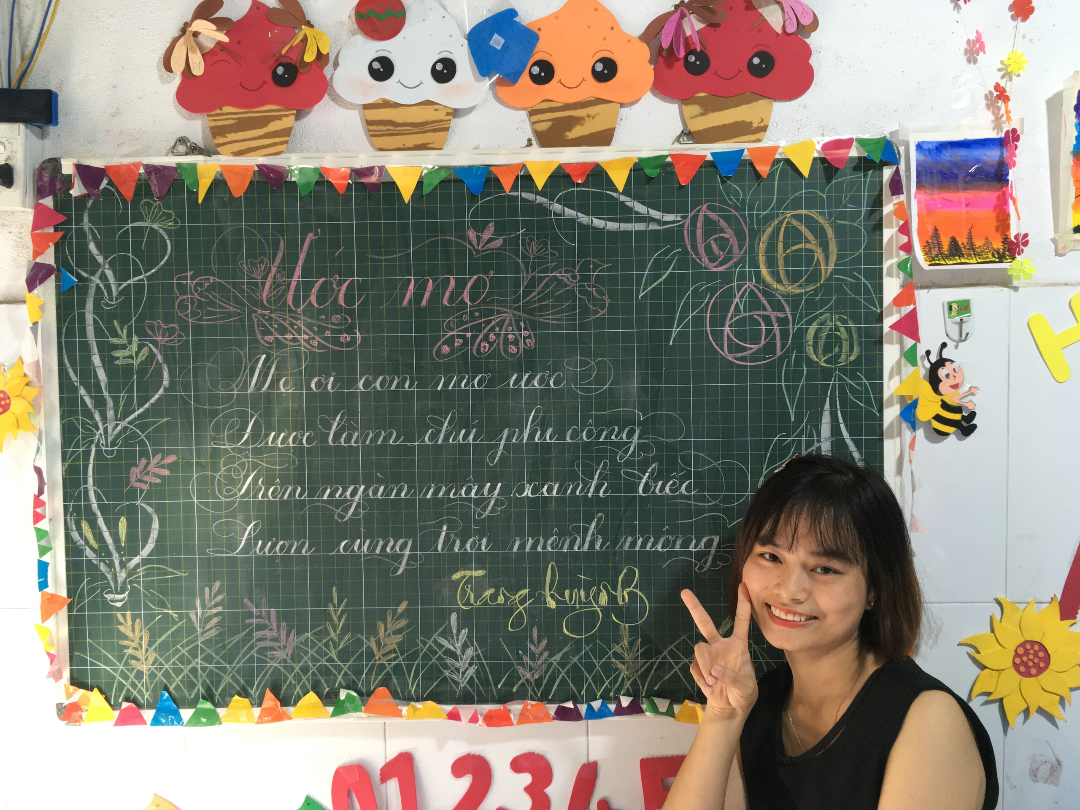 Ước mơ
Mẹ ơi con mơ ước
Được làm chú phi công
Trên ngàn mây xanh biếc
Lượn cùng trời mênh mông
Trang
01234